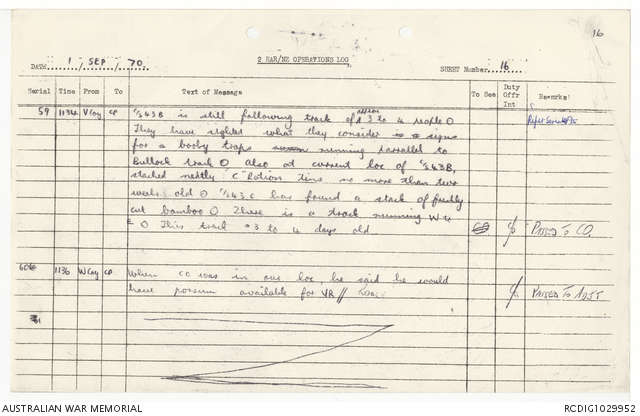 16
2 RAR/NZ OPERATIONS LOG
DATE 1 / SEP / 70 SHEET Number 16
Serial Time From To Text of Message To See Duty Offr Int Remarks
59 1134 V Coy CP C/S43B is still following track of approx 3 to 4 people O
They have sighted what they consider is signs
for a booby traps running parrallel to
Bullock track O Also at current loc of C/S43B,
stacked neatly "C" Ration tins no more than two
weeks old O C/S43.C has found a stack of freshly
cut bamboo O There is a track running W to
E O This track 3 to 4 days old PASSED TO CO.
60 1136 W Coy CP When CO was in our loc, he said he would
have possum available for VR// PASSED TO ADJT
61
AUSTRALIAN WAR MEMORIAL RCDIG1029952